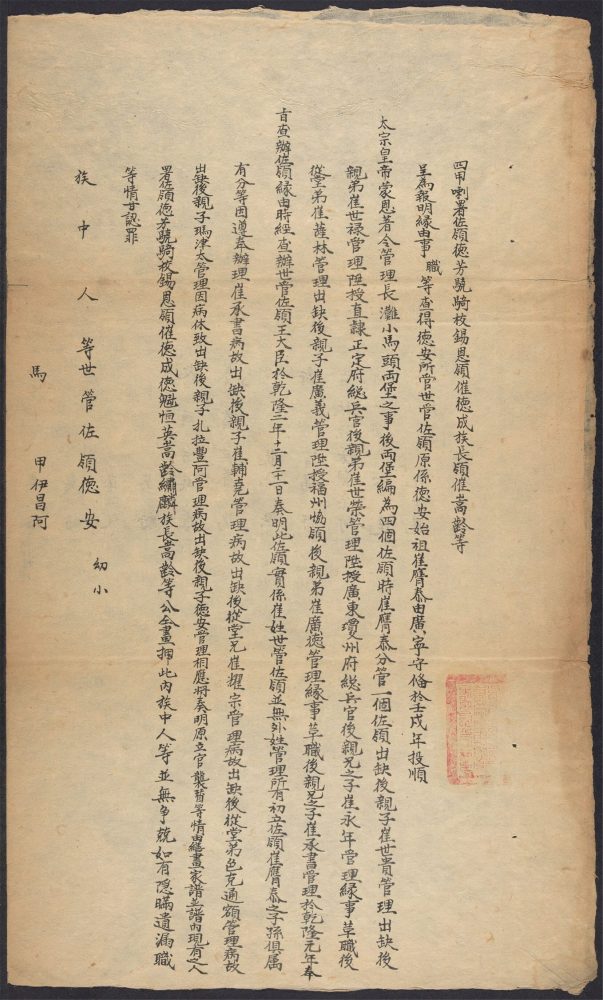 四甲喇署佐領德芳驍騎校錫恩領催德成族長領催嵩齡等
呈為報明緣由事 職等查得德安所管世管佐領原係德安始祖崔膺泰由廣寧守俻於壬戌年投順
太宗皇帝蒙恩著令管理長灘小馬頭兩堡之事後兩堡編為四個佐領時崔膺泰分管一個佐領出缺後親子崔世貴管理出缺後
親弟崔世禄管理陞授直隷正定府総兵官後親弟崔世榮管理陞授廣東瓊州府総兵官後親兄之子崔永年管理緣事革職後
從堂弟崔薩林管理出缺後親子崔廣義管理陞授福州協領後親弟崔廣德管理緣事革職後親兄之子崔承書管理於乾隆元年奉
旨查辦佐領緣由時經查辦世管佐領王大臣於乾隆二年十二月二十一日奏明此佐領實係崔姓世管佐領並無外姓管理所有初立佐領崔膺泰之子孫俱属
有分等因遵奉辦理崔承書病故出缺後親子崔輔堯管理病故出缺後從堂兄崔耀宗管理病故出缺後從堂弟色克通額管理病故
出缺後親子瑪津太管理因病休致出缺後親子扎拉豐阿管理病故出缺後親子德安管理相應将奏明原立官襲暂等情由繕畫家譜並譜內現有之人
署佐領德芳驍騎校錫恩領催德成德魁恒英嵩齡繡麟族長嵩齡等公仝畫押此內族中人等並無争競如有隠瞞遺漏職
等情甘認罪
族中人等世管佐領德安 幼小
馬甲伊昌阿